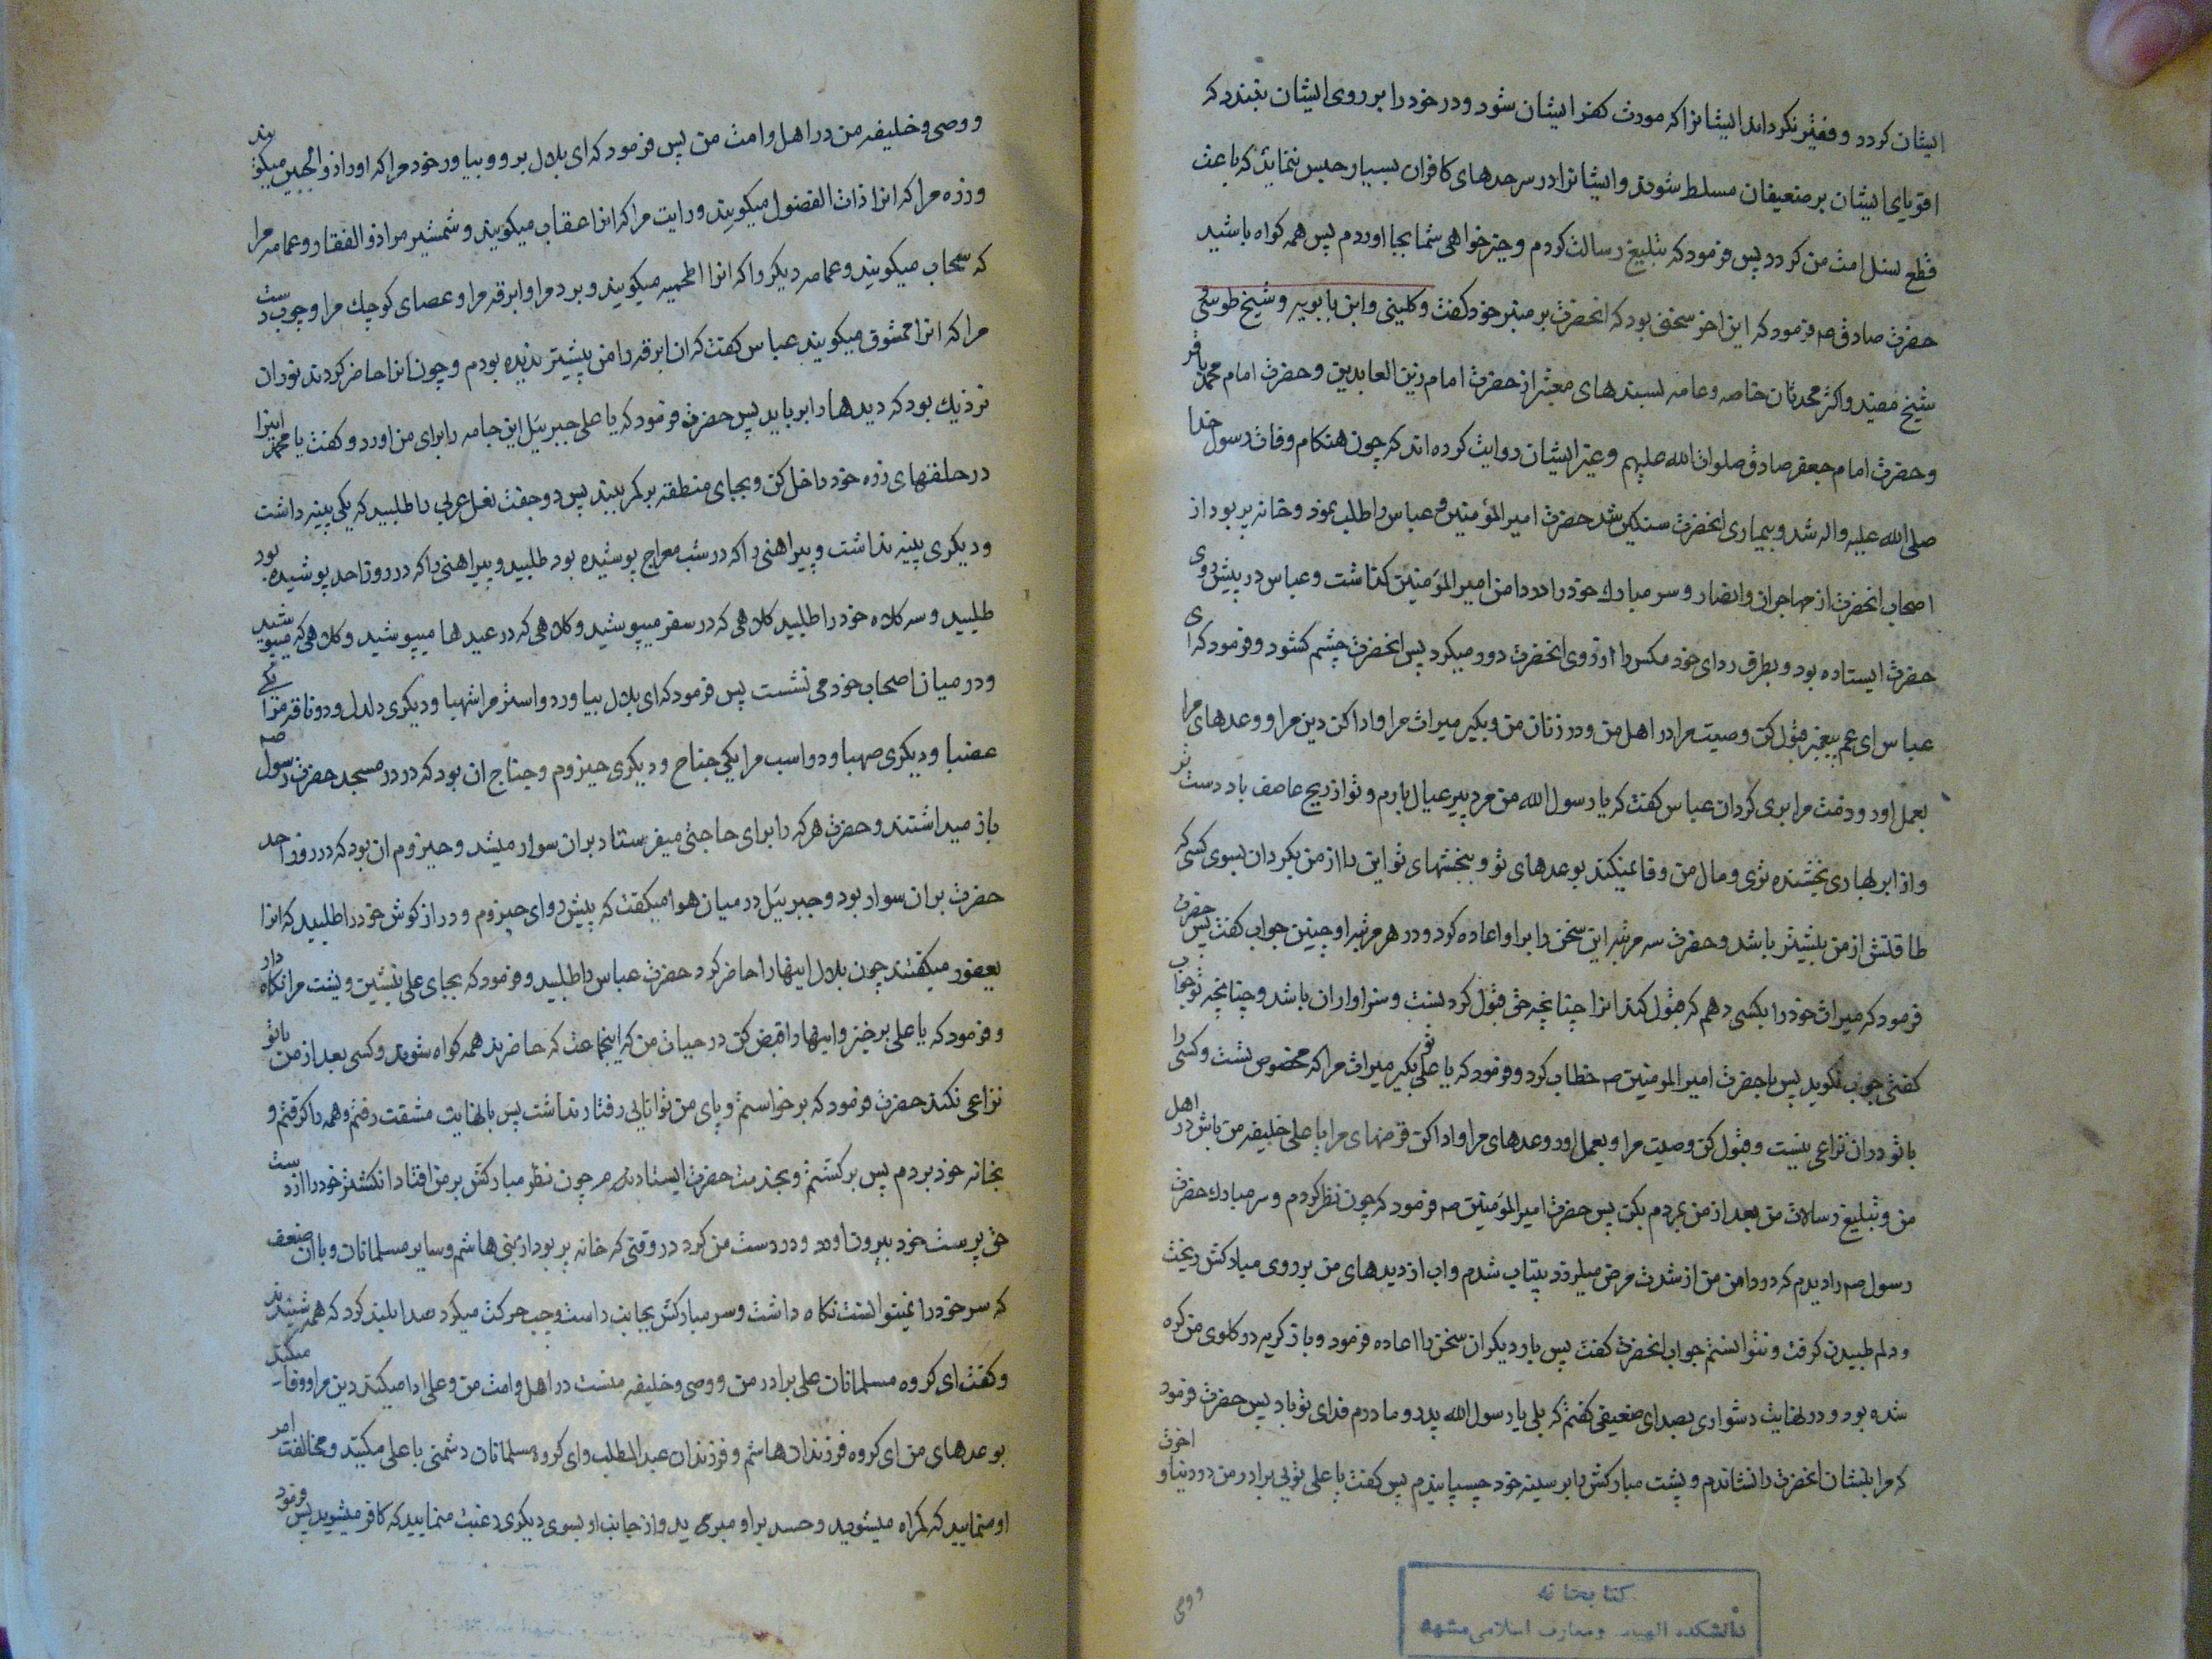 ایشان کردد وفقیر نکرداند ایشانرا که مورث کفر ایشان شود ودر خود را بر روی ایشان نبندد که
اقویای ایشان بر ضعیفان مسلط شوند وایشانرا در سرحدهای کافران بسیار حبس ننماید که باعث
قطع نسل امت من کردد پس فرمود که تبلیغ رسالت کردم وخیر خواهی شما بجا اوردم پس همه کواه باشید
حضرت صادق ع فرمود که این اخر سخنی بود که انحضرت بر منبر خود کفت وکلینی وابن بابویه وشیخ طوسی
شیخ مفید واکثر محدثان خاصه وعامه بسندهای معتبر از حضرت امام زین العابدین وحضرت امام محمد باقر
وحضرت امام جعفر صادق صلوات الله علیهم وغیر ایشان روایت کرده اند که چون هنکام وفات رسول خدا
صلی الله علیه واله شد وبیماری انحضرت سنکین شد حضرت امیر المؤمنین وعباس را طلب نمود وخانه پر بود از
اصحاب انحضرت از مهاجران وانصار وسر مبارك خود را در دامن امیر المؤمنین کذاشت وعباس در پیش روی
حضرت ایستاده بود وبطرف ردای خود مکس را از روی انحضرت دور میکرد پس انحضرت چشم کشود وفرمود که ای
عباس ای عم پیغمبر قبول کن وصیت مرا در اهل من ودر زنان من وبکیر میراث مرا وادا کن دین مرا ووعدهای مرا
بعمل اور وذمت مرا بری کردان عباس کفت که یا رسول الله من مرد پیر عیال بارم وتو از ریح عاصف باد دست تر
واز ابر بهاری بخشنده تری ومال من وفا نمیکند بوعدهای تو وبخششهای تو این را از من بکردان بسوی کسی که
طاقتش از من بیشتر باشد وحضرت سه مرتبه این سخن را بر او اعاده کرد ودر هر مرتبه او چنین جواب کفت پس حضرت
فرمود که میراث خود را بکسی دهم که قبول کند انرا چنانچه حق قبول کردنست وسزاوار ان باشد وچنانچه تو جواب
کفتی جواب نکوید پس با حضرت امیر المومنین ع خطاب کرد وفرمود که یا علی تو بکیر میراث مرا که مخصوص تست وکسی را
با تو در ان نزاعی نیست وقبول کن وصیت مرا وبعمل اور وعدهای مرا وادا کن قرضهای مرا یا علی خلیفه من باش در اهل
من وتبلیغ رسالت من بعد از من بمردم بکن پس حضرت امیر المؤمنین ع فرمود که چون نظر کردم وسر مبارك حضرت
رسول ص را دیدم که در دامن من از شدت مرض میلرزد بیتاب شدم واب از دیدهای من بر روی مبارکش ریخت
ودلم طپیدن کرفت ونتوانستم جواب انحضرت کفت پس بار دیکر ان سخن را اعاده فرمود وباز کریه در کلوی من کره
شده بود ودر نهایت دشواری بصدای ضعیفی کفتم که بلی یا رسول الله پدر ومادرم فدای تو باد پس حضرت فرمود
که مرا بنشان انحضرت را نشاندم وپشت مبارکش را بر سینه خود چسپانیدم پس کفت یا علی توئی برادر من در دنیا واخرت
ووصی
کتابخانه
دانشکده الهیات ومعارف اسلامی مشهد
ووصی وخلیفه من در اهل وامت من پس فرمود که ای بلال برو وبیاور خود مرا که اورا ذو الجبین میکویند
وزره مرا که انرا ذات الفضول میکویند ورایت مرا که انرا عقاب میکویند وشمشیر مرا ذو الفقار وعمامه مرا
که سحاب میکویند وعمامه دیکر را که انرا اطحمیه میکویند وبرد مرا وابرقه مرا وعصای کوچك مرا وچوب دست
مرا که انرا ممشوق میکویند عباس کفت که ان ابرقه را من پیشتر ندیده بودم وچون انرا حاضر کردند نور ان
نزدیك بود که دیدها را برباید پس حضرت فرمود که یا علی جبرئیل این جامه را برای من اورد وکفت یا محمد اینرا
در حلقهای زره خود داخل کن وبجای منطقه بر کمر ببند پس دو جفت نعل عربی را طلبید که یکی پینه داشت
ودیکری پینه نداشت وپیراهنی را که در شب معراج پوشیده بود طلبید وپیراهنی را که در روز احد پوشیده بود
طلبید وسه کلاه خود را طلبید کلاهی که در سفر میپوشید وکلاهی که در عیدها میپوشید وکلاهی که میپوشید
ودر میان اصحاب خود می نشست پس فرمود که ای بلال بیاور دو استر مرا شهبا ودیکری دلدل ودو ناقه مرا یکی
عضبا ودیکری صهبا ودو اسب مرا یکی جناح ودیکری حیزوم وجناح ان بود که در در مسجد حضرت رسول ص
باز میداشتند وحضرت هر که را برای حاجتی میفرستاد بران سوار میشد وحیزوم ان بود که در روز احد
حضرت بران سوار بود وجبرئیل در میان هوا میکفت که پیش رو ای حیزوم ودراز کوش خود را طلبید که انرا
یعفور میکفتند چون بلال اینها را حاضر کرد حضرت عباس را طلبید وفرمود که بجای علی بنشین وپشت مرا نکاه دار
وفرمود که یا علی برخیز واینها را قبض کن در حیات من که اینجماعت که حاضرند همه کواه شوند وکسی بعد از من با تو
نزاعی نکند حضرت فرمود که برخواستم وپای من توانایی رفتار نداشت پس با نهایت مشقت رفتم وهمه را کرفتم و
بخانه خود بردم پس برکشتم وبخدمت حضرت ایستادم چون نظر مبارکش بر من افتاد انکشتر خود را از دست
حق پرست خود بیرون اورد ودر دست من کرد در وقتی که خانه پر بود از بنی هاشم وسایر مسلمانان وبا ان ضعف
که سر خود را نمیتوانست نکاه داشت وسر مبارکش بجانب راست وچپ حرکت میکرد صدا بلند کرد که همه شنیدند
وکفت ای کروه مسلمانان علی برادر من ووصی وخلیفه منست در اهل وامت من وعلی ادا میکند دین مرا ووفا میکند
بوعدهای من ای کروه فرزندان هاشم وفرزندان عبد المطلب وای کروه مسلمانان دشمنی با علی مکنید ومخالفت امر
او منمایید که کمراه میشوید وحسد بر او مبرید واز جانب او بسوی دیکری رغبت منمایید که کافر میشوید پس فرمود